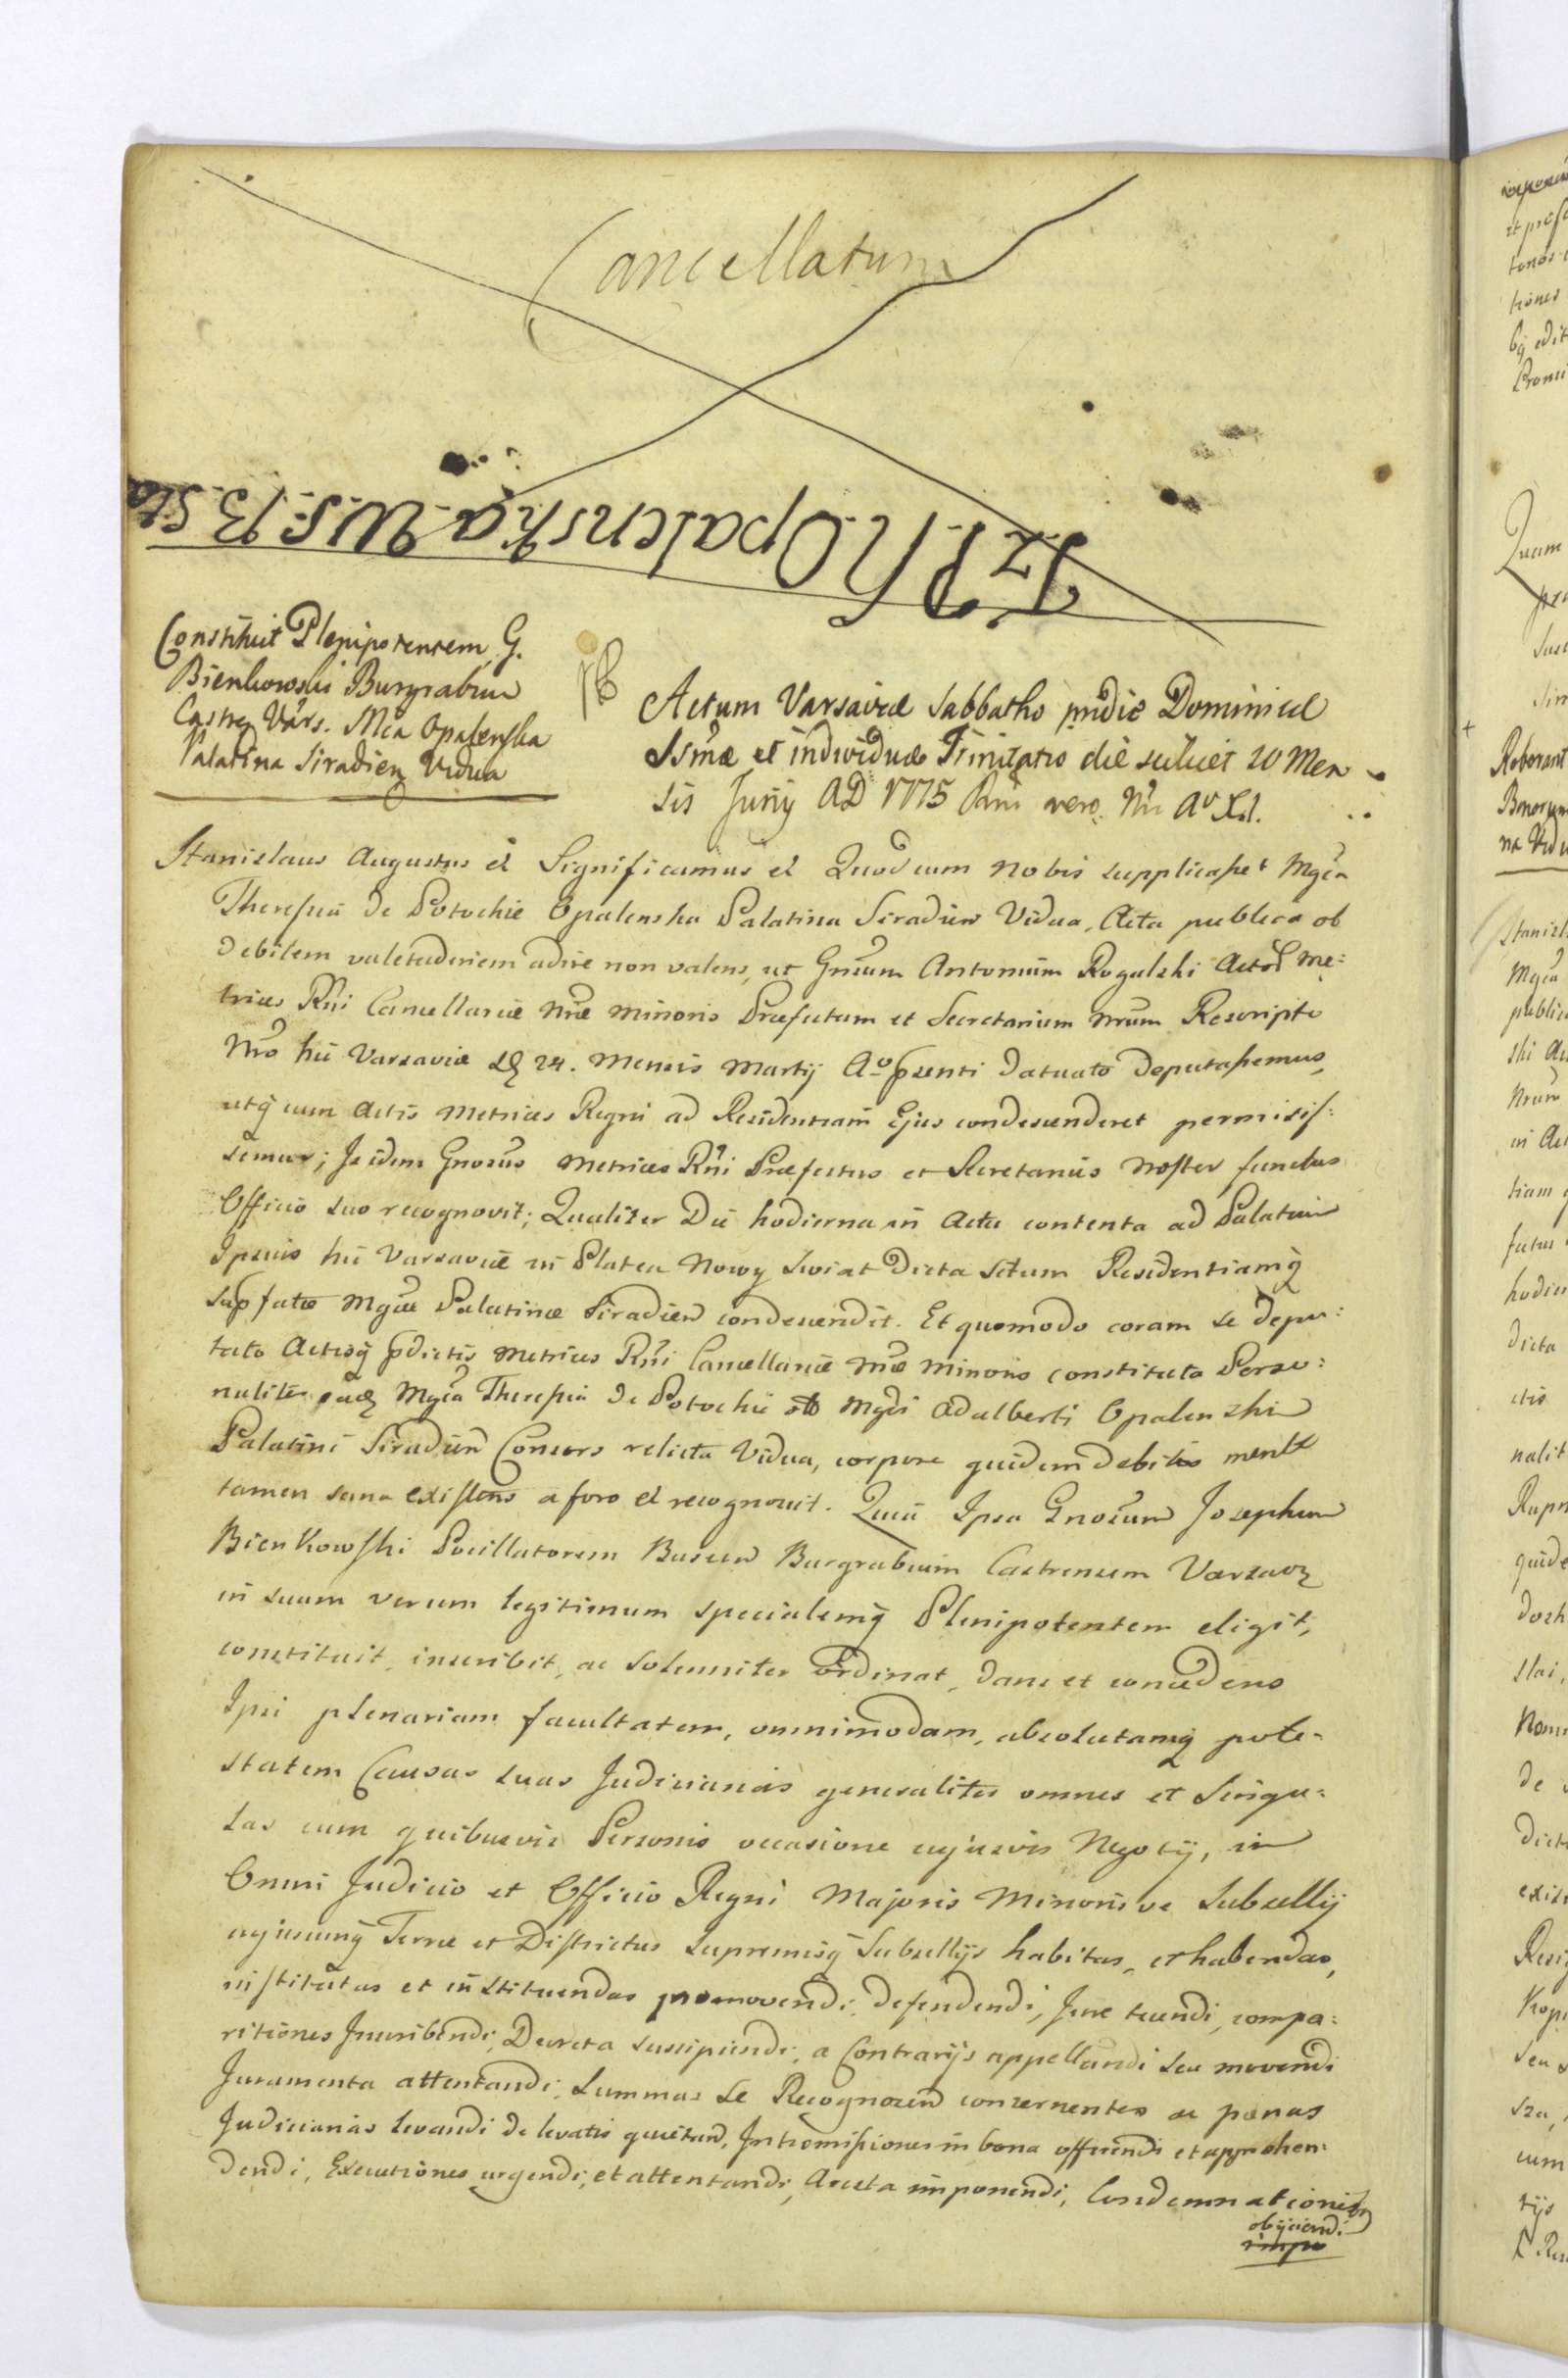 Cancellatum
JzPn Opalenska W.S. 13
Constituit Plenipotentem G.
Bienkowski Burgrabium
Castren Vars. Mca Opalenska
Palatina Siradien Vidua
Actum Varsaviæ Sabbatho pridie Dominicæ
Ssmæ et individuæ Trinitatis die scilicet 10 Men
sis Junij AD 1775 Rni vero Nri Aº XI.
Stanislaus Augustus et Significamus et Quod cum nobis supplicasset Mgca
Theresia de Potockie Opalenska Palatina Siradien Vidua, Acta publica ob
debilem valetudinem adire non valens, ut Gnosum Antonium Rogalski Actor Me:
trices Rni Cancellariæ Nræ Minoris Præfectum et Secretarium Nrum Rescripto
Nro hic Varsaviæ 24. Mensis Martij Aº psenti datuato deputassemus,
utq cum Actis Metrices Regni ad Residentiam Ejus condescenderet permisis:
semus; Is idem Gnosus Metrices Rni Præfectus et Secretarius Noster functus
Officio suo recognovit; Qualiter Die hodierna in Actu contenta ad Palatium
Ipsius hic Varsaviæ in Platea Nowy Swiat dicta situm Residentiamq
supfatæ Mgcæ Palatinæ Siradien condescendit. Et quomodo coram se depu:
tato Actisq pdictis Metrices Rni Cancellariæ Nræ Minoris constituta Perso:
naliter eadem Mgca Theresia de Potockie Mgci Adalberti Opalenski
Palatini Siradien Consors relicta Vidua, corpore quidem debilis mente
tamen sana existens a foro et recognovit. Quia Ipsa Gnosum Josephum
Bienkowski Pocillatorem Buscen Burgrabium Castrensem Varsav
in suum verum legitimum specialemq Plenipotentem eligit,
constituit, inscribit, ac solenniter ordinat, dans et concedens
Ipsi plenariam facultatem, omnimodam, absolutamq pote-
statem Causas suas Judiciarias generaliter omnes et Singu:
las cum quibusvis Personis occasione cujusvis Negotij, in
Omni Judicio et Officio Regni Majoris Minorisve Subsellij
cujuscunq Terræ et Districtus Supremisq Subsellijs habitas, et habendas,
institutas et instituendas promovendi, defendendi, Jure tuendi, compa:
ritiones Inscribendi, Decreta suscipiendi, a Contrarijs appellandi seu movendi
Juramenta attentandi, Summas Se Recognoscen concernentes ac pænas
Judiciarias levandi de levatis quietand, Intromissiones in bona offerendi et apprehen:
dendi, Executiones urgendi, et attentandi, Aresta imponendi, Condemnationes
objiciendi
impo